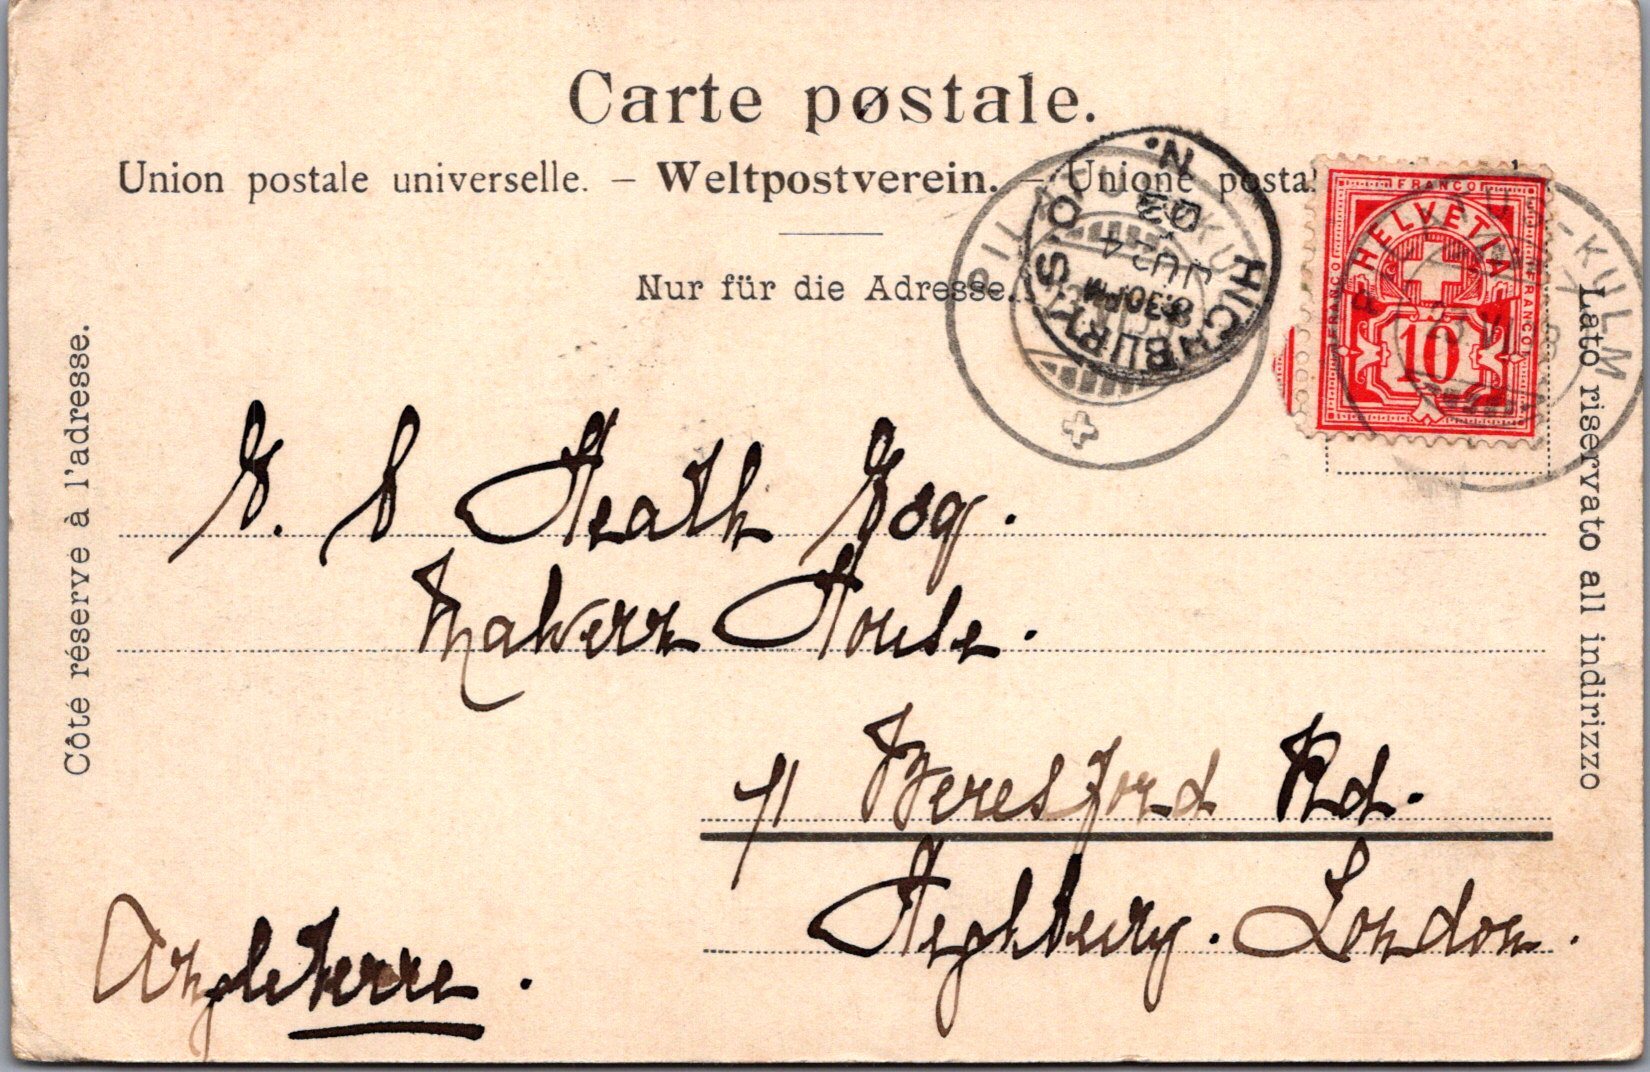 Carte postale.
Union postale universelle. – Weltpostverein. – Unione posta
Nur für die Adresse.
Côté réservé à l'adresse.
Lato riservato all indirizzo
FRANCO
HELVETIA
FRANCO
FRANCO
10
PILATUS-KULM
PILATUS-KULM
HIGHBURY S.O.
N.
8.30PM
JU 24
03
Heath Esq.
Malvern House.
11 Beresford Rd.
Highbury. London.
Angleterre.